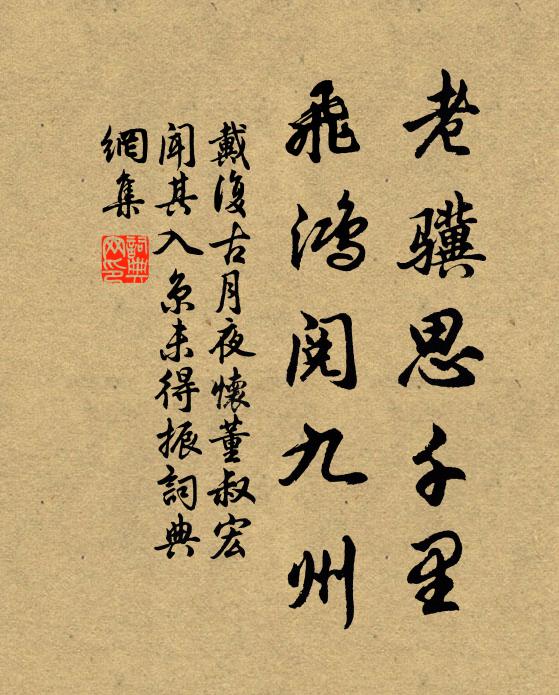 老驥思千里
飛鴻閱九州
戴復古月夜懷董叔宏
聞其入京未得振詞典
網集
詞典
网印